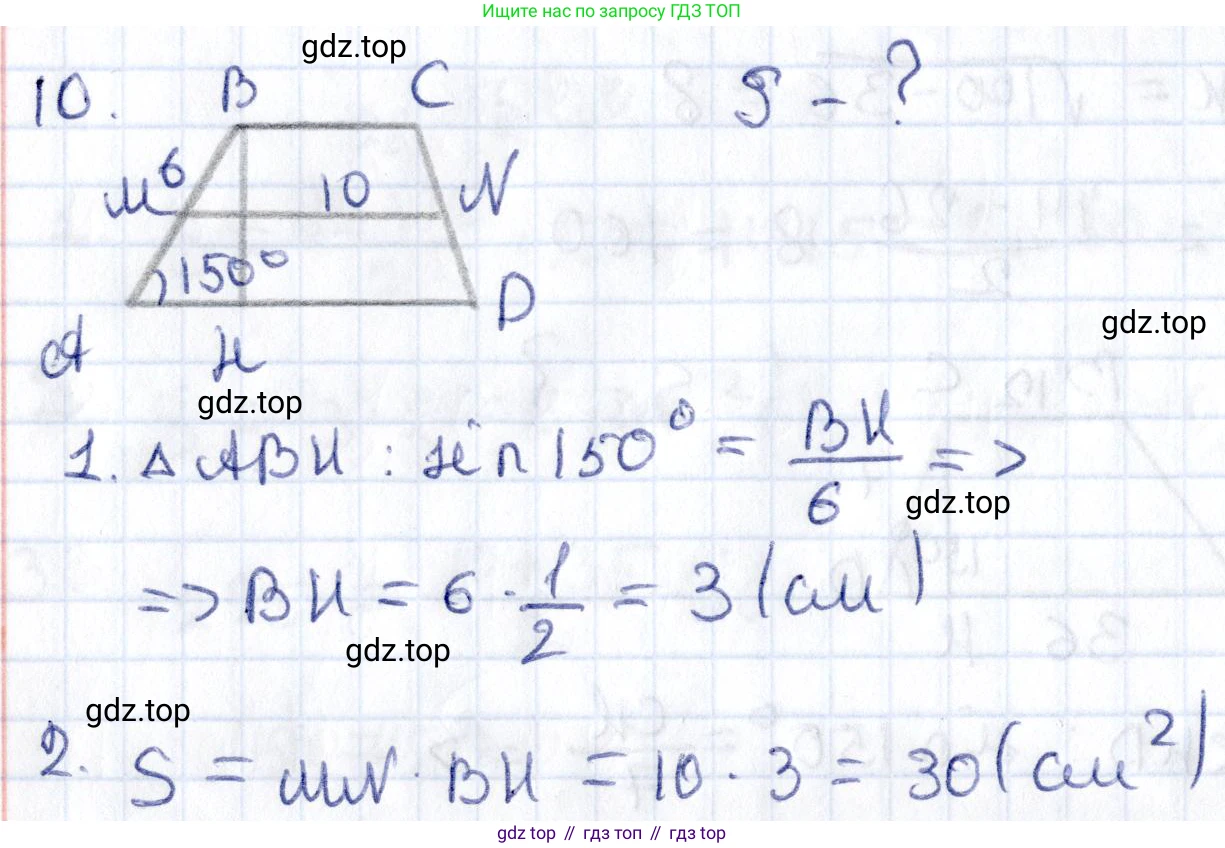 Ищите нас по запросу ГДЗ ТОП
gdz.top
10. B C S - ?
M 6 10 N
150° D
A H
gdz.top
gdz.top
1. △ABH : sin 150° = BH/6 =>
gdz.top
=> BH = 6 · 1/2 = 3 (см)
gdz.top
gdz.top
2. S = MN · BH = 10 · 3 = 30 (см²)
gdz.top // гдз топ // гдз top